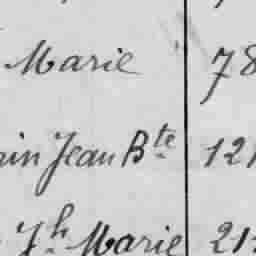 Marie 78
in Jean Bte 121
Jh Marie 21